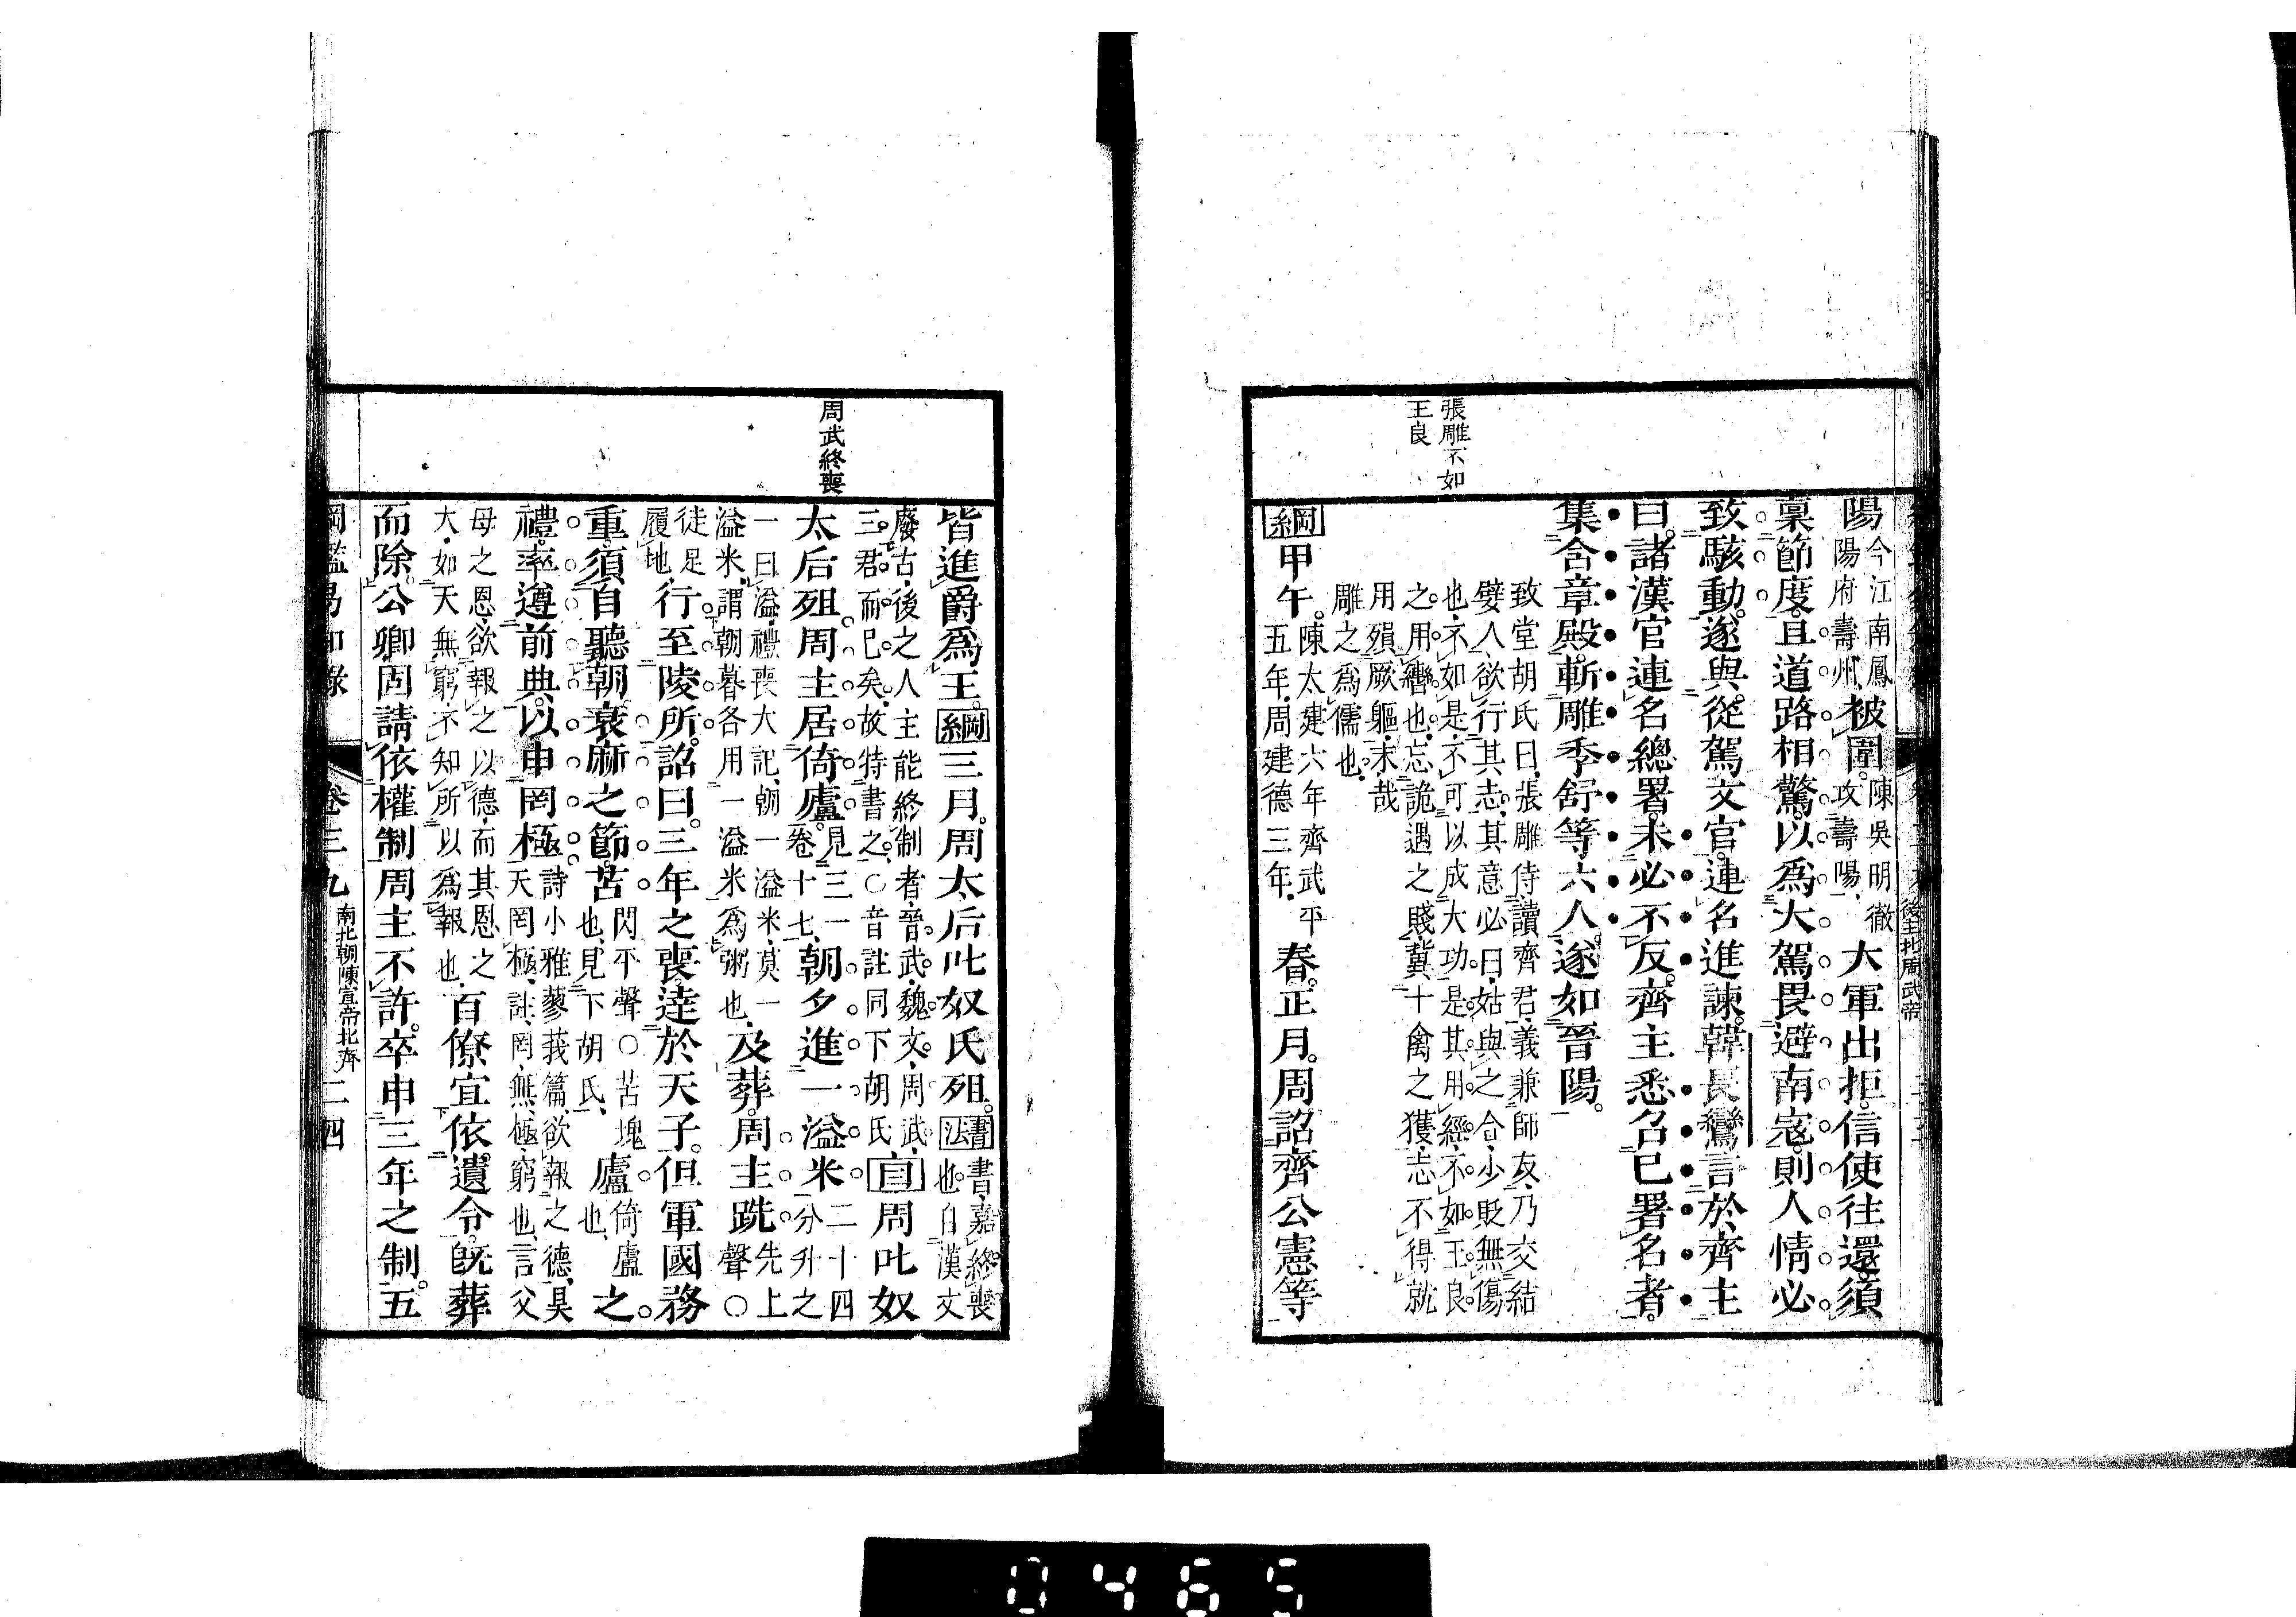 張雕不如
王良
陽今江南鳳陽府壽州被圍陳吳明徹攻壽陽大軍出拒信使往還須
稟節度且道路相驚以爲大駕畏避南寇則人情必
致駭動遂與從駕文官連名進諫韓長鸞言於齊主
曰諸漢官連名總署未必不反齊主悉召已署名者
集含章殿斬雕季舒等六人遂如晉陽
致堂胡氏曰張雕侍讀齊君義兼師友乃交結
嬖人欲行其志其意必曰姑與之合少貶無傷
也不如是不可以成大功是其用經不如王良
之用轡也忘詭遇之賤冀十禽之獲志不得就
用殞厥軀末哉
雕之爲儒也
綱甲午陳太建六年齊武平五年周建德三年春正月周詔齊公憲等
周武終喪
皆進爵爲王綱三月周太后叱奴氏殂書法書嘉終喪也自漢文
廢古後之人主能終制者晉武魏文周武三君而已矣故特書之○音註同下胡氏目周叱奴
太后殂周主居倚廬見三一卷十七朝夕進一溢米二十四分升之
一曰溢禮喪大記朝一溢米莫一溢米謂朝暮各用一溢米爲粥也及葬周主跣先上聲○
徒足履地行至陵所詔曰三年之喪達於天子但軍國務
重須自聽朝衰麻之節苫閃平聲○苫塊也見下胡氏廬倚廬也之
禮率遵前典以申罔極詩小雅蓼莪篇欲報之德昊天罔極註罔無極窮也言父
母之恩欲報之以德而其恩之大如天無窮不知所以爲報也百僚宜依遺令旣葬
而除公卿固請依權制周主不許卒申三年之制五
綱鑑易知錄 卷三九 南北朝陳宣帝北齊 二四
0465